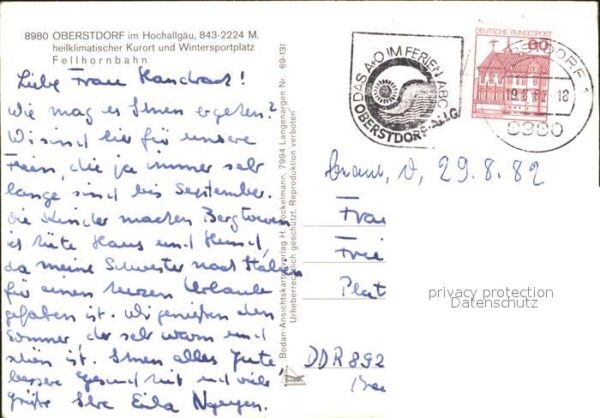 8980 OBERSTDORF im Hochallgäu, 843-2224 M.
heilklimatischer Kurort und Wintersportplatz
Fellhornbahn
Liebe Frau
Wie mag es Ihnen ergehen?
Wir sind hier für unsere
Ferien, die ja immer sehr
lange sind bis September.
Die Kinder machen Bergtouren
ich hüte Haus und Hund,
da meine Schwester nach Italien
für einen kurzen Urlaub
gefahren ist. Wir genießen den
Sommer, der sehr warm und
schön ist. Ihnen alles Gute,
bessere Gesundheit und viele
Grüße Ihre
Bodan-Ansichtskartenverlag H. Bockelmann, 7994 Langenargen Nr. 69-131
Urheberrechtlich geschützt. Reproduktion verboten
DAS A+O IM FERIEN-ABC
OBERSTDORF-ALLG.
DEUTSCHE BUNDESPOST
60
OBERSTDORF 1
8980
29.8.82
Frau
Frie
Plat
DDR 892
privacy protection
Datenschutz